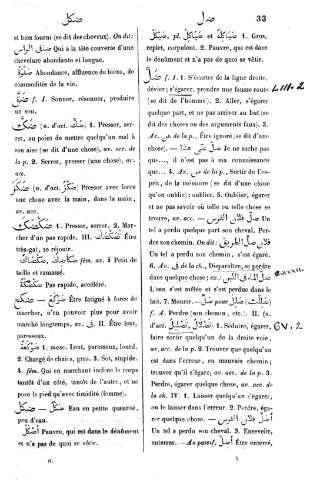 ضكل
ضل
33
et bien fourni (se dit des cheveux). On dit:
Qui a la tête couverte d'une
chevelure abondante et longue.
Abondance, affluence de biens, de
commodités de la vie.
f. I. Sonner, résonner, produire
un son.
(n. d'act. ضَكّ) 1. Presser, serrer,
au point de mettre quelqu'un mal à
son aise (se dit d'une chose), av. acc. de
la p. 2. Serrer, presser (une chose), av.
acc.
(n. d'act. ضَكْز) Presser avec force
une chose avec la main, dans la main,
av. acc.
ضَكْضَكَ 1. Presser, serrer. 2. Marcher
d'un pas rapide. III. تَضَكْضَكَ Être
très-gai, se réjouir.
fém. ة Petit de
taille et ramassé.
Pas rapide, accéléré.
Être fatigué à force de
marcher, n'en pouvoir plus pour avoir
marché longtemps, av. في. II. Être lent,
paresseux.
ضَوْكَعَة 1. masc. Lent, paresseux, lourd.
2. Chargé de chairs, gras. 3. Sot, stupide.
4. fém. Qui en marchant incline le corps
tantôt d'un côté, tantôt de l'autre, et ne
pose le pied qu'avec timidité (femme).
ضكل — Eau en petite quantité,
peu d'eau.
Pauvre, qui est dans le dénûment
et n'a pas de quoi se vêtir.
II.
1. Gros,
replet, corpulent. 2. Pauvre, qui est dans
le dénûment et n'a pas de quoi se vêtir.
ضَلَّ f. I. 1. S'écarter de la ligne droite,
dévier; s'égarer, prendre une fausse route
(se dit de l'homme). 2. Aller, s'égarer
quelque part, et ne pas arriver au but (se
dit des choses ou des arguments faux). 3.
Av. من de la p., Être ignoré (se dit d'une
chose). Je ne sache pas
que..., il n'est pas à ma connaissance
que... 4. Av. من de la p., Sortir de l'esprit,
de la mémoire (se dit d'une chose
qu'on oublie); oublier. 5. S'égarer, errer,
et ne pas savoir où telle ou telle chose se
trouve, av. acc. — ضَلَّ فُلَانٌ الْفَرَسَ Un
tel a perdu quelque part son cheval. Perdre
son chemin. On dit: ضَلَّ فُلَانٌ الطَّرِيقَ
Un tel a perdu son chemin, s'est égaré.
6. Av. في de la ch., Disparaître, se perdre
dans quelque chose; ضَلَّ الْمَاءُ فِي اللَّبَنِ
L'eau s'est mêlée et s'est perdue dans le
lait. 7. Mourir. — ضَلَّ pour
f. A. Perdre (son chemin, etc.). II. (n.
d'act. تَضْلِيل, تَضْلَال) 1. Séduire, égarer,
faire sortir quelqu'un de la droite voie,
av. acc. de la p. 2. Trouver que quelqu'un
est dans l'erreur, en mauvais chemin;
trouver qu'il s'égare, av. acc. de la p. 3.
Perdre, égarer quelque chose, av. acc. de
la ch. IV. 1. Laisser quelqu'un s'égarer,
ou le laisser dans l'erreur. 2. Perdre, égarer
quelque chose.
Un tel a perdu son cheval. 3. Ensevelir,
enterrer. — Au passif, أُضِلَّ Être enterré,
5